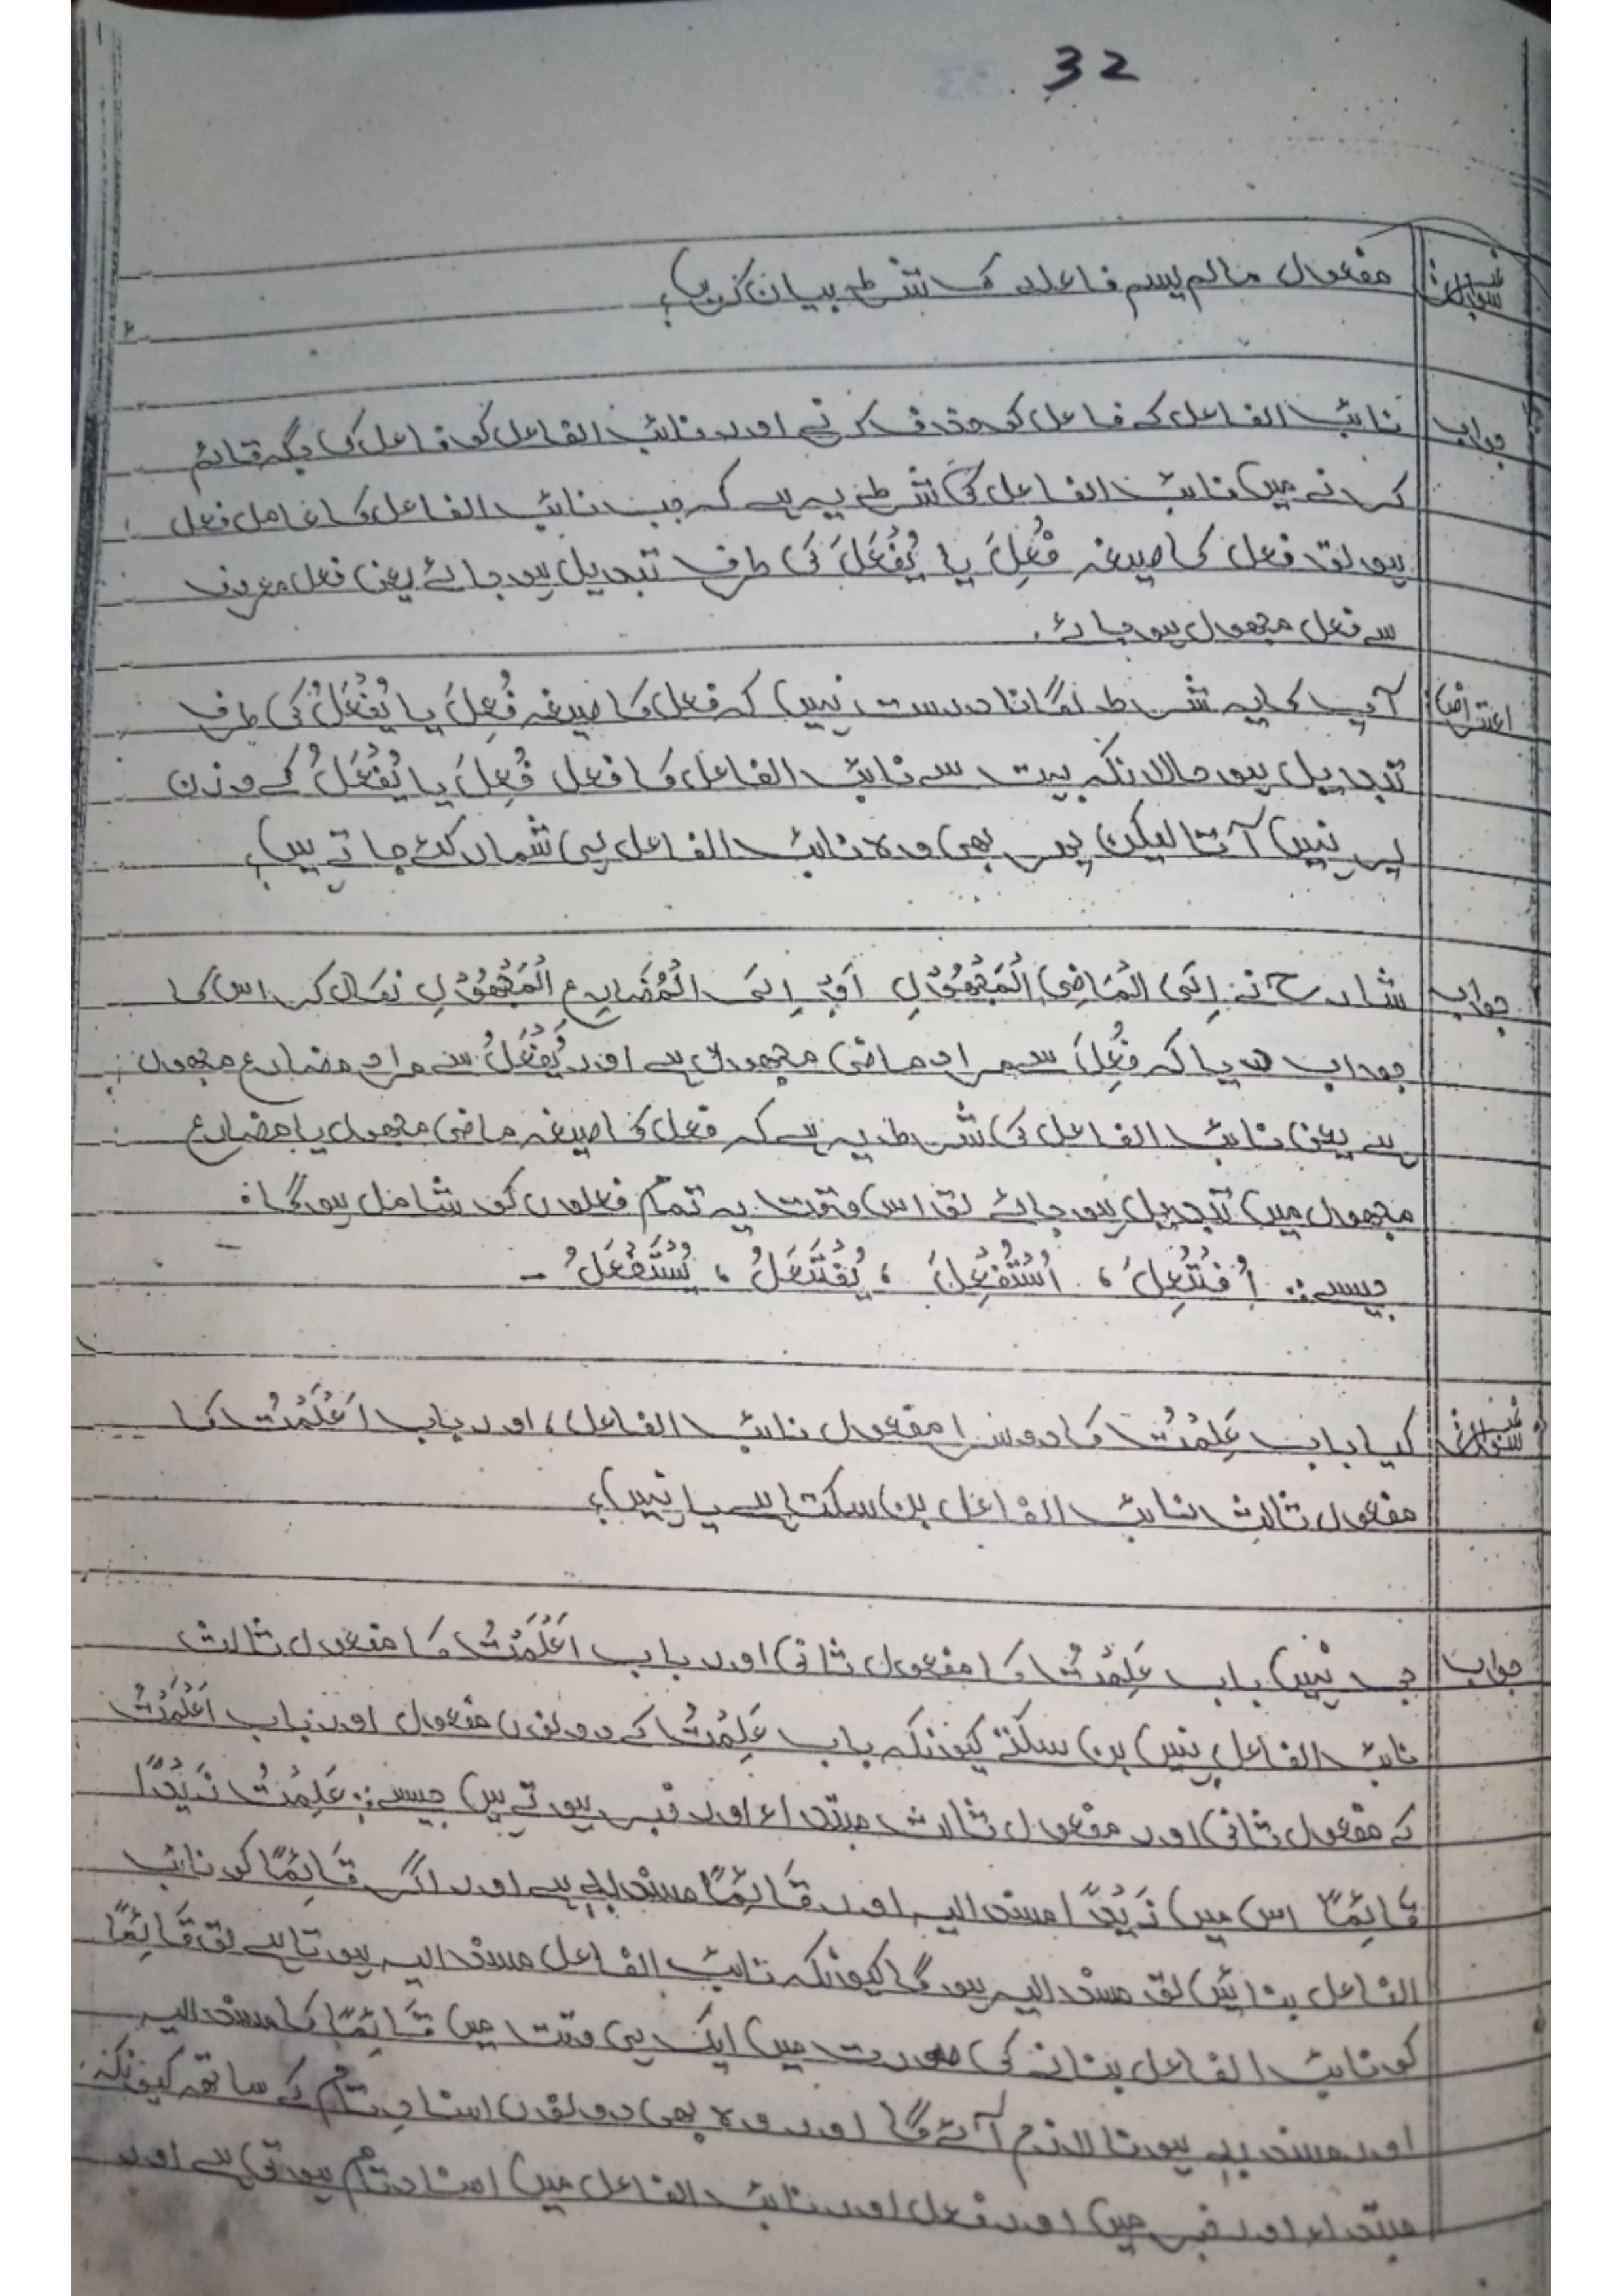 32
سوال نمبر مفعول مالم یسم فاعلہ کی شرط بیان کریں؟
جواب نائب الفاعل کے فاعل کو حذف کرنے اور نائب الفاعل کو فاعل کی جگہ قائم
کرنے میں نائب الفاعل کی شرط یہ ہے کہ جب نائب الفاعل کا عامل فعل
ہو تو فعل کا صیغہ فُعِلَ یا یُفْعَلَ کی طرف تبدیل ہو جائے یعنی فعل معروف
سے فعل مجھول ہو جائے.
اعتراض آپ کا یہ شرط لگانا درست نہیں کہ فعل کا صیغہ فُعِلَ یا یُفْعَلُ کی طرف
تبدیل ہو حالانکہ بہت سے نائب الفاعل کا فعل فُعِلَ یا یُفْعَلُ کے وزن
پر نہیں آتا لیکن پھر بھی وہ نائب الفاعل ہی شمار کئے جاتے ہیں؟
جواب شارح نے اِلَی الْمَاضِی الْمَجْھُوْلِ اَوْ اِلَی الْمُضَارِعِ الْمَجْھُوْلِ نکال کر اس کا
جواب دیا کہ فُعِلَ سے مراد ماضی مجھول ہے اور یُفْعَلُ سے مراد مضارع مجھول
ہے یعنی نائب الفاعل کی شرط یہ ہے کہ فعل کا صیغہ ماضی مجھول یا مضارع
مجھول میں تبدیل ہو جائے تو اس وقت یہ تمام فعلوں کو شامل ہوگا۔
جیسے:. اُفْتُعِلَ، اُسْتُفْعِلَ، یُفْتَعَلُ، یُسْتَفْعَلُ -
سوال نمبر کیا باب عَلِمْتُ کا دوسرا مفعول نائب الفاعل، اور باب اَعْلَمْتُ کا
مفعول ثالث نائب الفاعل بن سکتا ہے یا نہیں؟
جواب جی نہیں باب عَلِمْتُ کا مفعول ثانی اور باب اَعْلَمْتُ کا مفعول ثالث
نائب الفاعل نہیں بن سکتے کیونکہ باب عَلِمْتُ کے دونوں مفعول اور باب اَعْلَمْتُ
کے مفعول ثانی اور مفعول ثالث مبتداء اور خبر ہوتے ہیں جیسے:. عَلِمْتُ زَیْدًا
قَائِمًا اس میں زَیْدًا مسند الیہ اور قَائِمًا مسند بہٖ ہے اور اگر قَائِمًا کو نائب
الفاعل بنائیں تو مسند الیہ ہوگا کیونکہ نائب الفاعل مسند الیہ ہوتا ہے تو قَائِمًا
کو نائب الفاعل بنانے کی صورت میں ایک ہی وقت میں قَائِمًا کا مسند الیہ
اور مسند بہٖ ہونا لازم آئے گا اور وہ بھی دونوں اسنادِ تام کے ساتھ کیونکہ
مبتداء اور خبر میں اور فعل اور نائب الفاعل میں اسناد تام ہوتی ہے اور